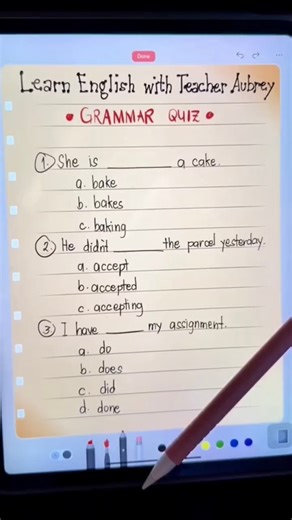 Done
Learn English with Teacher Aubrey
• GRAMMAR QUIZ •
1. She is ________ a cake.
a. bake
b. bakes
c. baking
2. He didn't ________ the parcel yesterday.
a. accept
b. accepted
c. accepting
3. I have ______ my assignment.
a. do
b. does
c. did
d. done